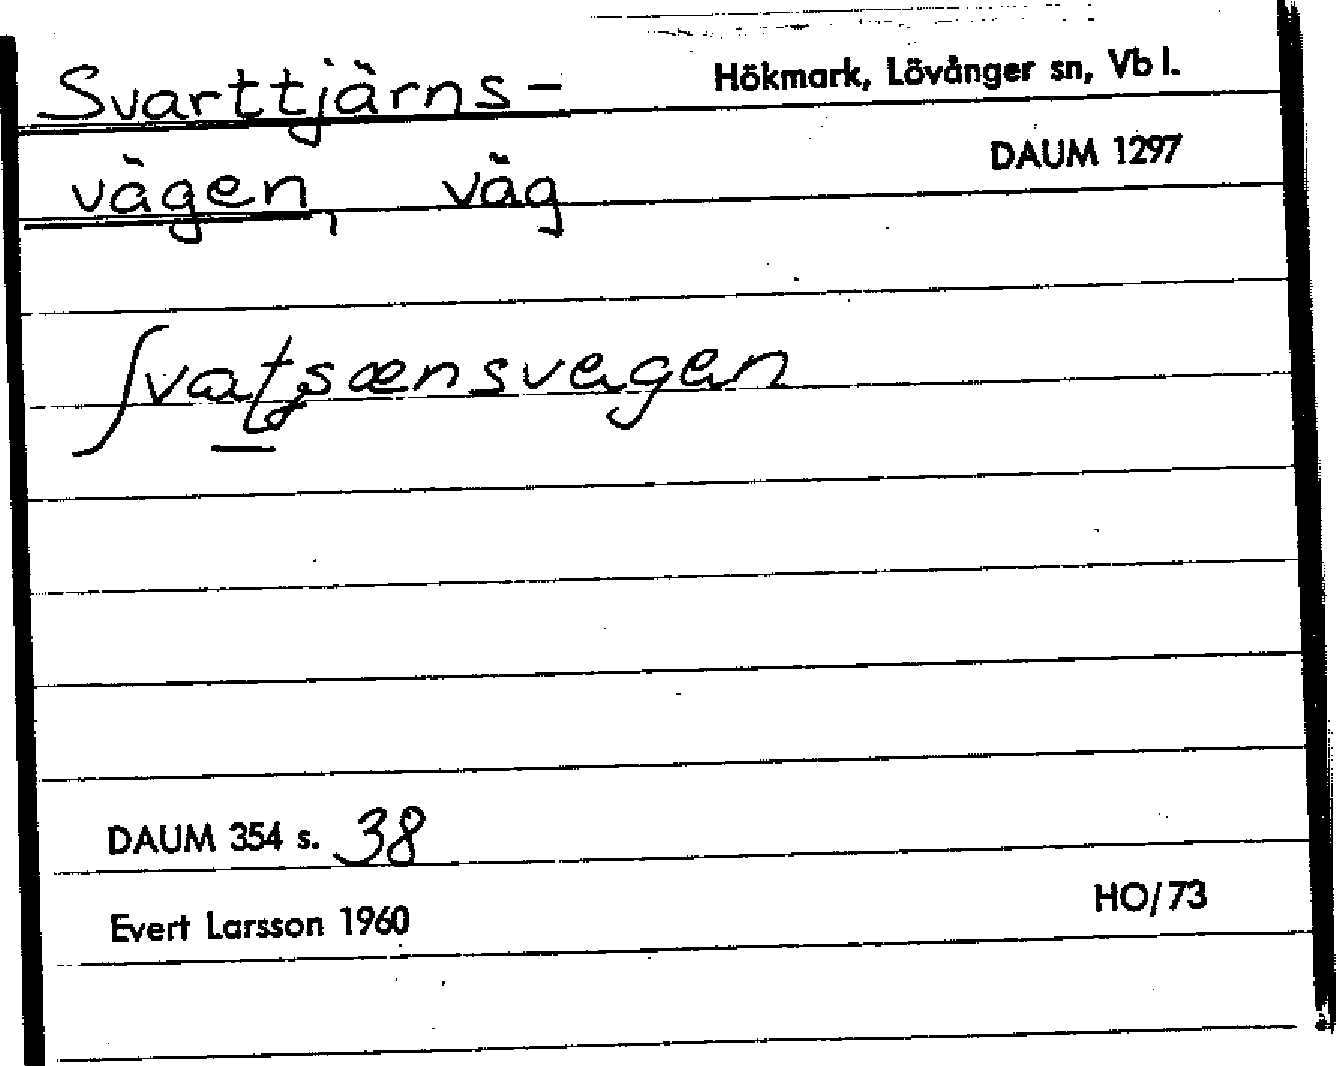 Svarttjärns-
Hökmark, Lövånger sn, Vb l.
vägen, väg
DAUM 1297
ʃvatʂænsvegen
DAUM 354 s. 38
Evert Larsson 1960
HO/73